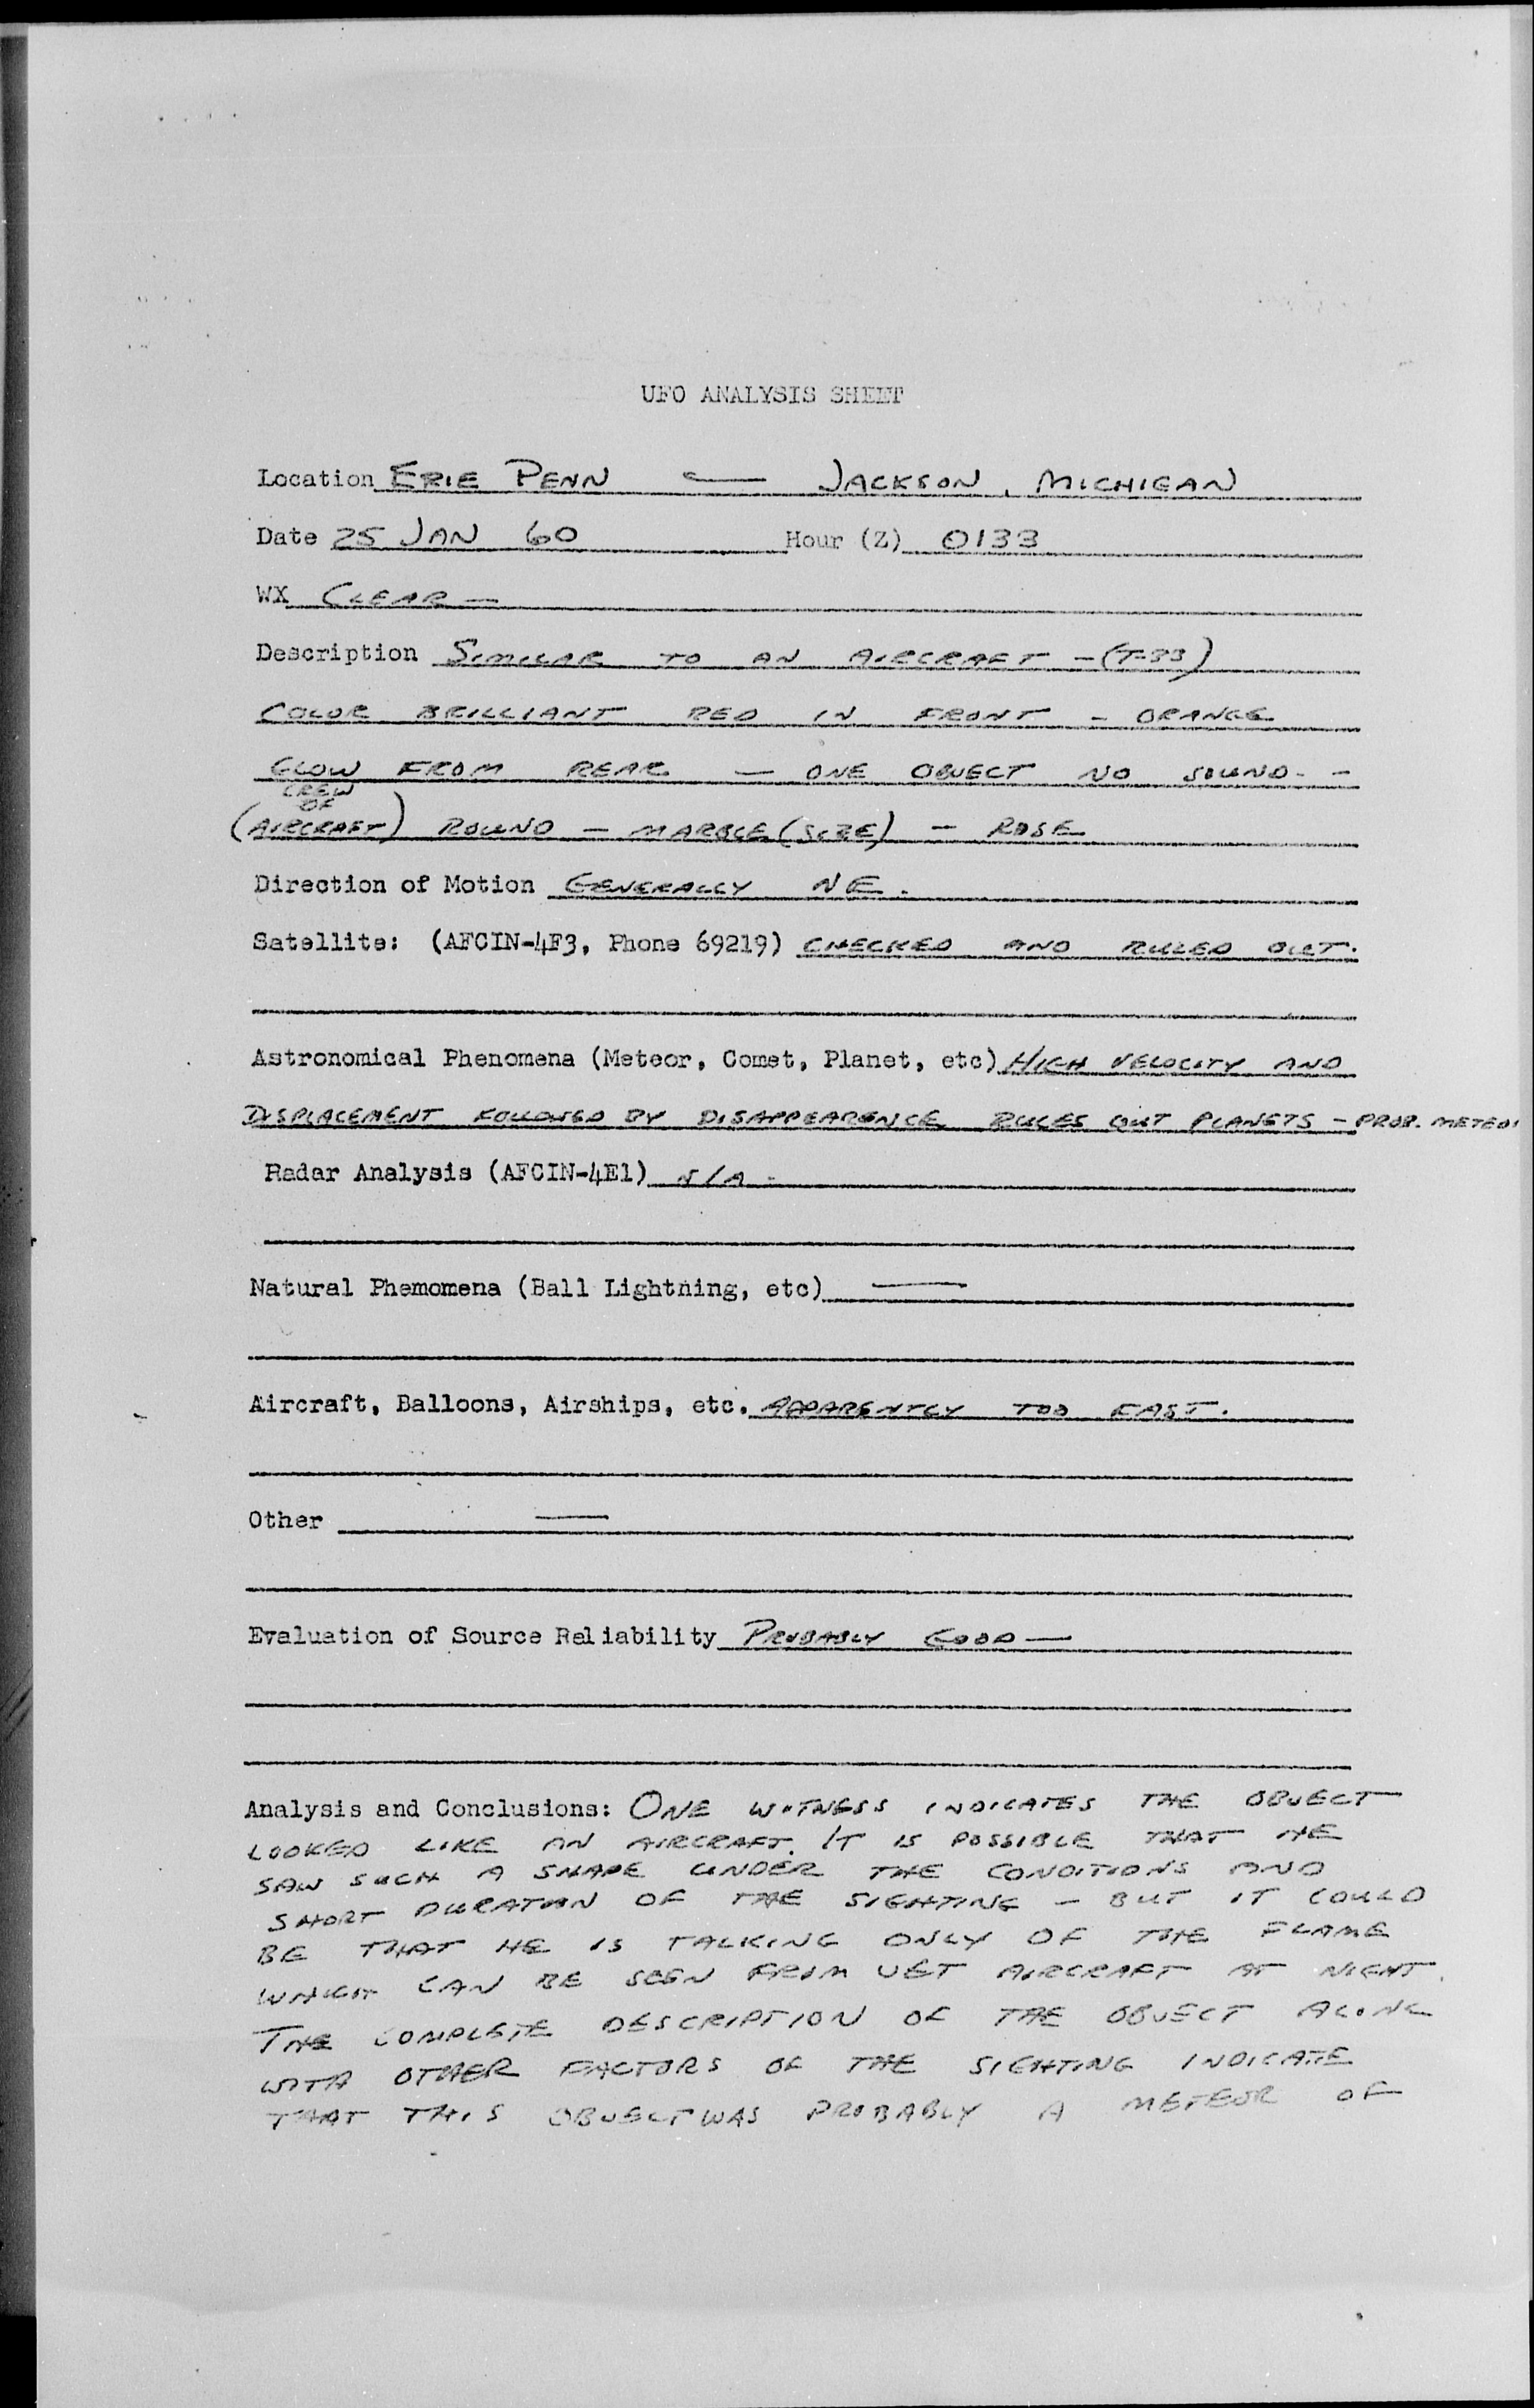 UFO ANALYSIS SHEET
Location ERIE PENN — JACKSON, MICHIGAN
Date 25 JAN 60 Hour (Z) 0133
WX CLEAR —
Description SIMILAR TO AN AIRCRAFT - (T-33)
COLOR BRILLIANT RED IN FRONT - ORANGE
GLOW FROM REAR — ONE OBJECT NO SOUND - -
(CREW OF AIRCRAFT) ROUND - MARBLE (SIZE) - ROSE
Direction of Motion GENERALLY NE.
Satellite: (AFCIN-4F3, Phone 69219) CHECKED AND RULED OUT.
Astronomical Phenomena (Meteor, Comet, Planet, etc) HIGH VELOCITY AND
DISPLACEMENT FOLLOWED BY DISAPPEARENCE RULES OUT PLANETS - PROB. METEOR
Radar Analysis (AFCIN-4E1) N/A -
Natural Phemomena (Ball Lightning, etc) —
Aircraft, Balloons, Airships, etc. APPARENTLY TOO FAST.
Other —
Evaluation of Source Reliability PROBABLY GOOD —
Analysis and Conclusions: ONE WITNESS INDICATES THE OBJECT
LOOKED LIKE AN AIRCRAFT. IT IS POSSIBLE THAT HE
SAW SUCH A SHAPE UNDER THE CONDITIONS AND
SHORT DURATION OF THE SIGHTING - BUT IT COULD
BE THAT HE IS TALKING ONLY OF THE FLAME
WHICH CAN BE SEEN FROM JET AIRCRAFT AT NIGHT.
THE COMPLETE DESCRIPTION OF THE OBJECT ALONG
WITH OTHER FACTORS OF THE SIGHTING INDICATE
THAT THIS OBJECT WAS PROBABLY A METEOR OF